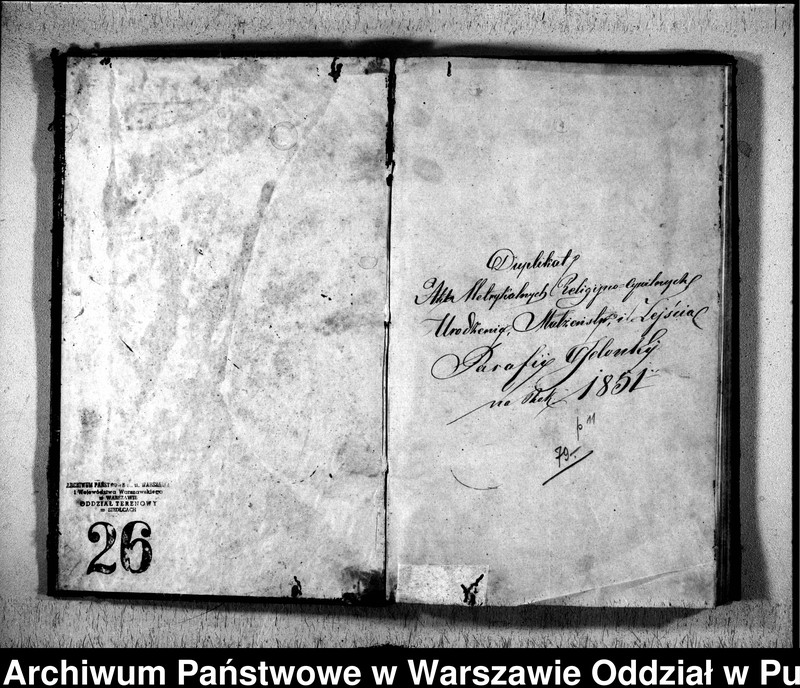 ARCHIWUM PAŃSTWOWE M. ST. WARSZAWY
i Województwa Warszawskiego
w WARSZAWIE
ODDZIAŁ TERENOWY
w SIEDLCACH
26
Duplikat
Akt Metrykalnych Religijno-Cywilnych
Urodzenia, Małżeństw, i Zejścia
Parafij
na Rok 1851
p 11
79.
Archiwum Państwowe w Warszawie Oddział w Pu